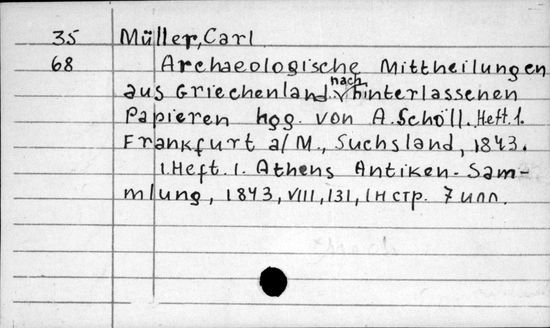 35 Müller, Carl
68 Archaeologische Mittheilungen
aus Griechenland nach hinterlassenen
Papieren hgg. von A. Schöll. Heft. 1.
Frankfurt a/M., Suchsland, 1843.
1. Heft. 1. Athens Antiken-Sam-
mlung, 1843, VIII, 131, 1н стр. 7 илл.